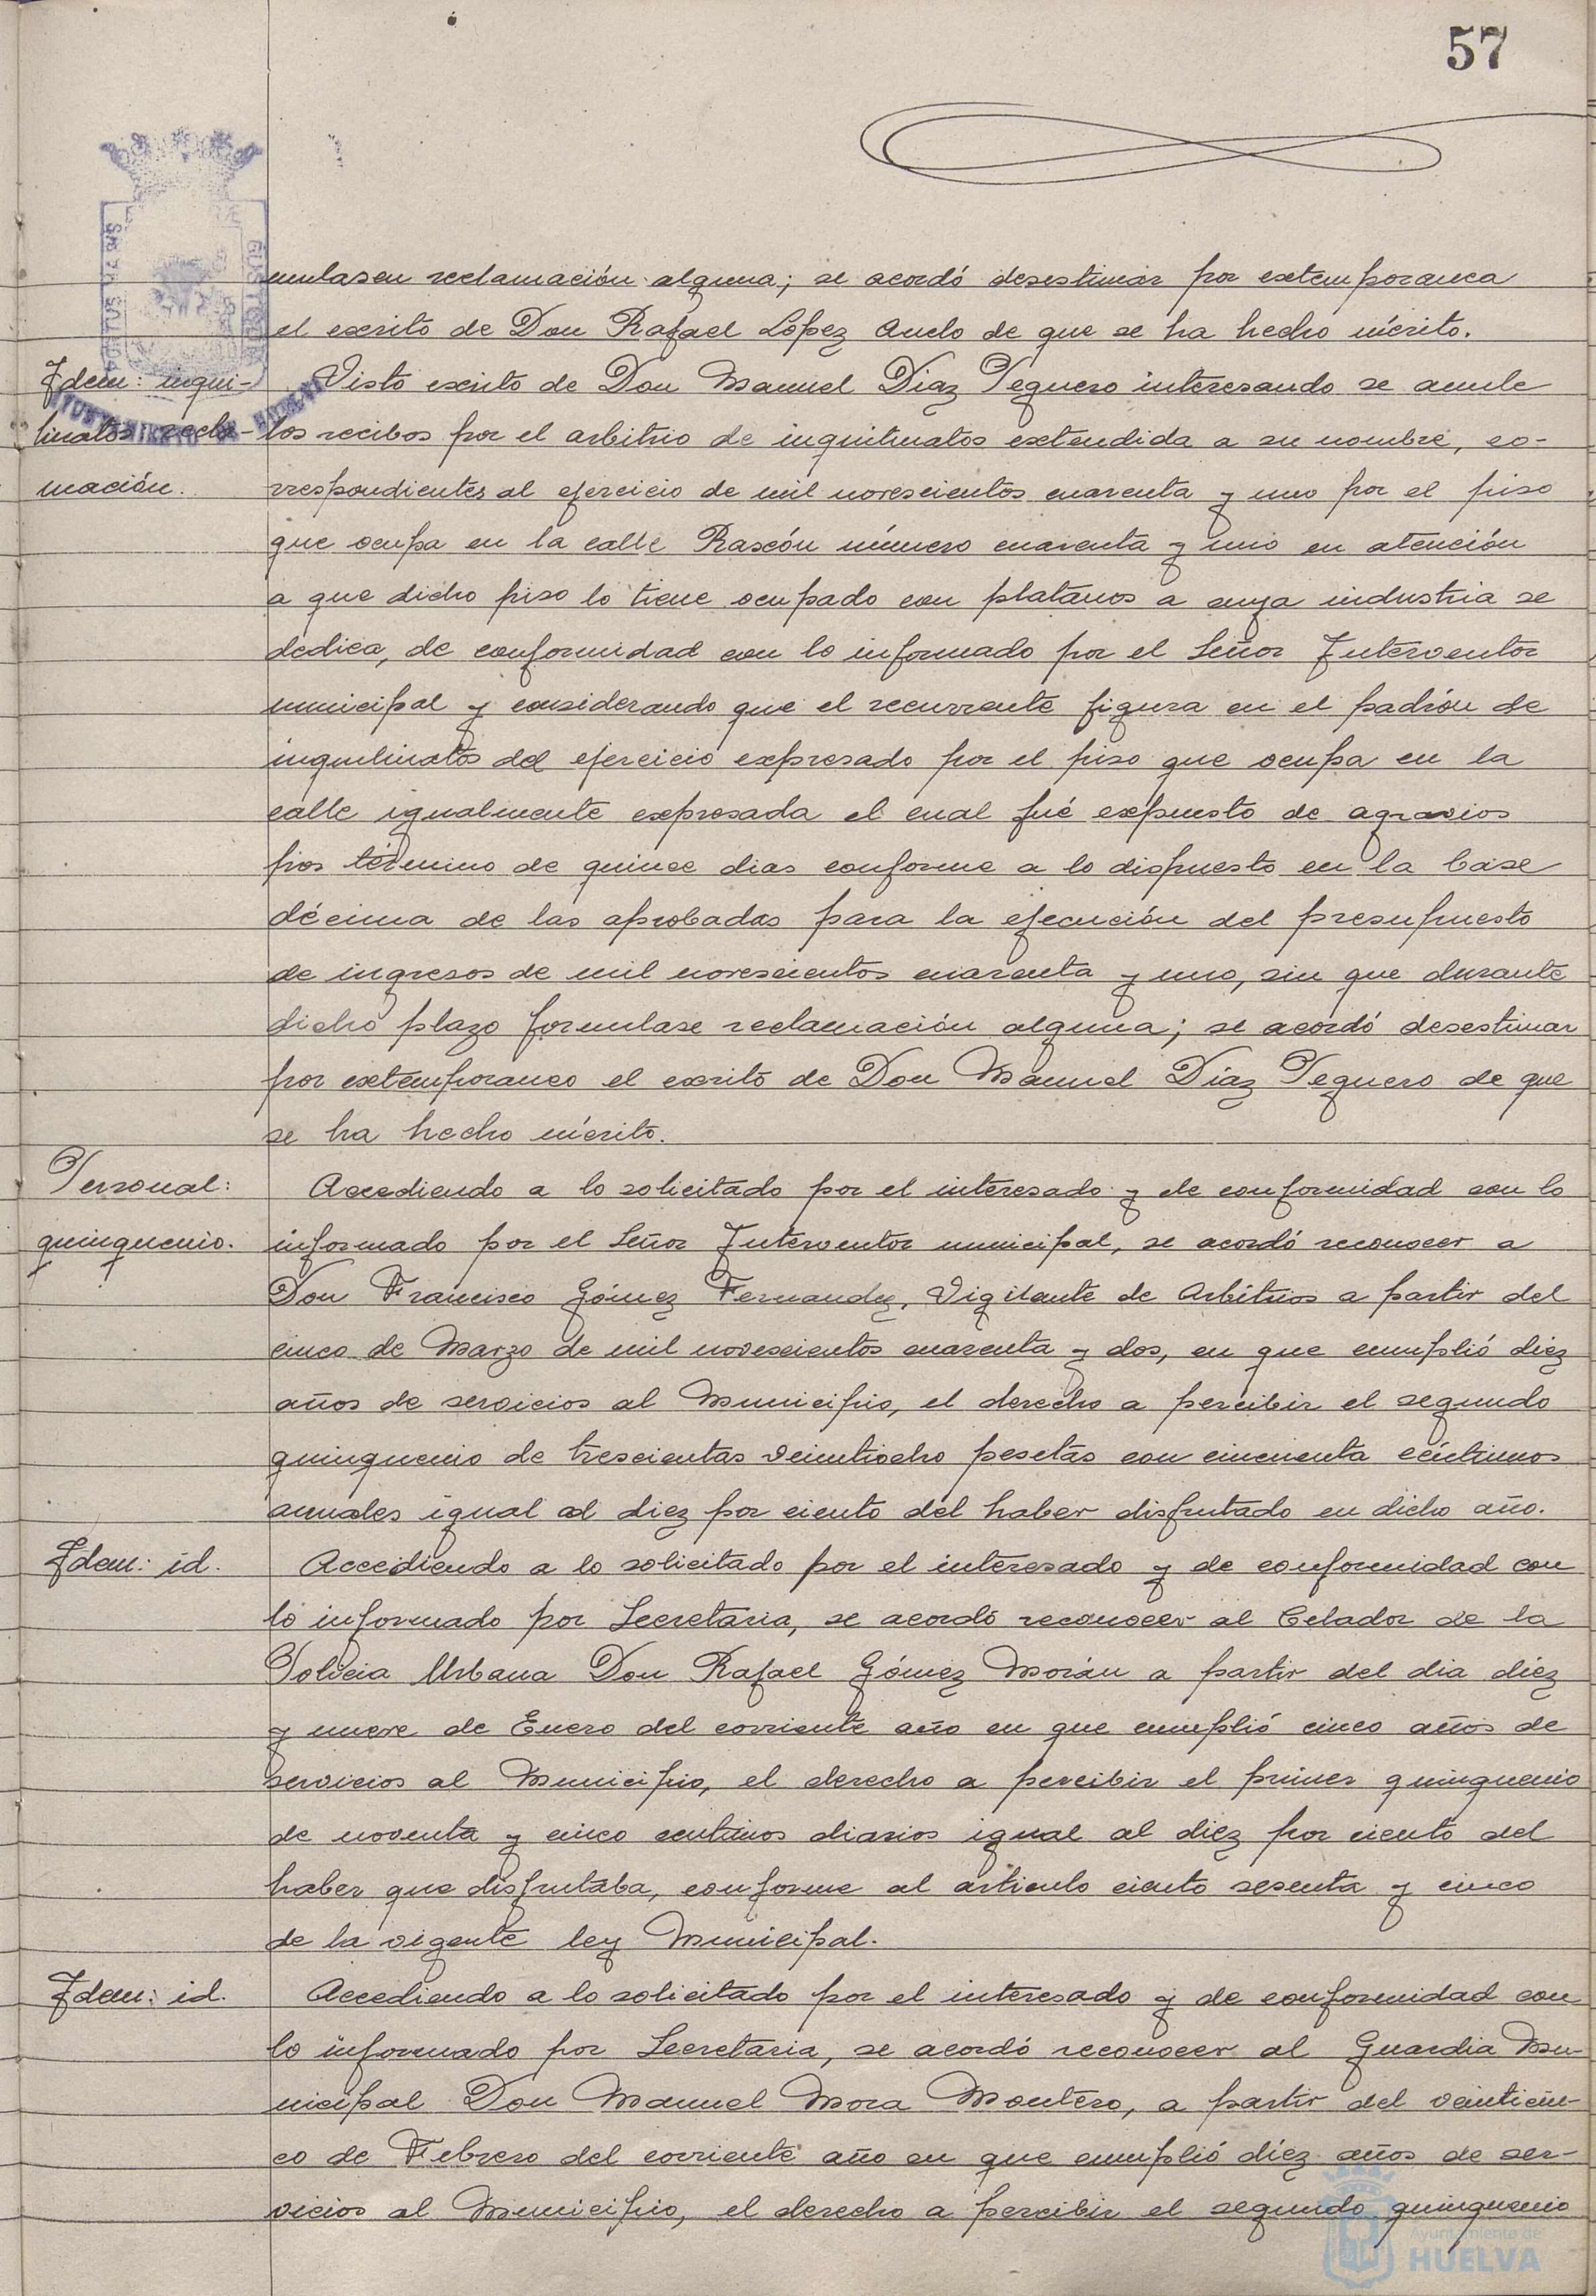 57
mulasen reclamación alguna; se acordó desestimar por extemporanea
el escrito de Don Rafael López Anelo de que se ha hecho mérito.
Idem: inqui-
linatos recla-
mación.
Visto escrito de Don Manuel Diaz Peguero interesando se anule
los recibos por el arbitrio de inquilinatos extendida a su nombre, co-
rrespondientes al ejercicio de mil novescientos cuarenta y uno por el piso
que ocupa en la calle Rascón número cuarenta y uno en atención
a que dicho piso lo tiene ocupado con platanos a cuya industria se
dedica, de conformidad con lo informado por el Señor Interventor
municipal y considerando que el recurrente figura en el padrón de
inquilinatos del ejercicio expresado por el piso que ocupa en la
calle igualmente expresada el cual fué expuesto de agravios
por término de quince dias conforme a lo dispuesto en la base
décima de las aprobadas para la ejecución del presupuesto
de ingresos de mil novescientos cuarenta y uno, sin que durante
dicho plazo formulase reclamación alguna; se acordó desestimar
por extemporaneo el escrito de Don Manuel Díaz Peguero de que
se ha hecho mérito.
Personal:
quinquenio.
Accediendo a lo solicitado por el interesado y de conformidad con lo
informado por el Señor Interventor municipal, se acordó reconocer a
Don Francisco Gómez Fernandez, Vigilante de Arbitrios a partir del
cinco de Marzo de mil novescientos cuarenta y dos, en que cumplió diez
años de servicios al Municipio, el derecho a percibir el segundo
quinquenio de trescientas veintiocho pesetas con cincuenta céntimos
anuales igual al diez por ciento del haber disfrutado en dicho año.
Idem: id.
Accediendo a lo solicitado por el interesado y de conformidad con
lo informado por Secretaria, se acordó reconocer al Celador de la
Policia Urbana Don Rafael Gómez Morán a partir del dia diez
y nueve de Enero del corriente año en que cumplió cinco años de
servicios al Municipio, el derecho a percibir el primer quinquenio
de noventa y cinco centimos diarios igual al diez por ciento del
haber que disfrutaba, conforme al articulo ciento sesenta y cinco
de la vigente ley Municipal.
Idem: id.
Accediendo a lo solicitado por el interesado y de conformidad con
lo informado por Secretaria, se acordó reconocer al Guardia Mu-
nicipal Don Manuel Mora Montero, a partir del veinticin-
co de Febrero del corriente año en que cumplió diez años de ser-
vicios al Municipio, el derecho a percibir el segundo quinquenio
Ayuntamiento de
HUELVA